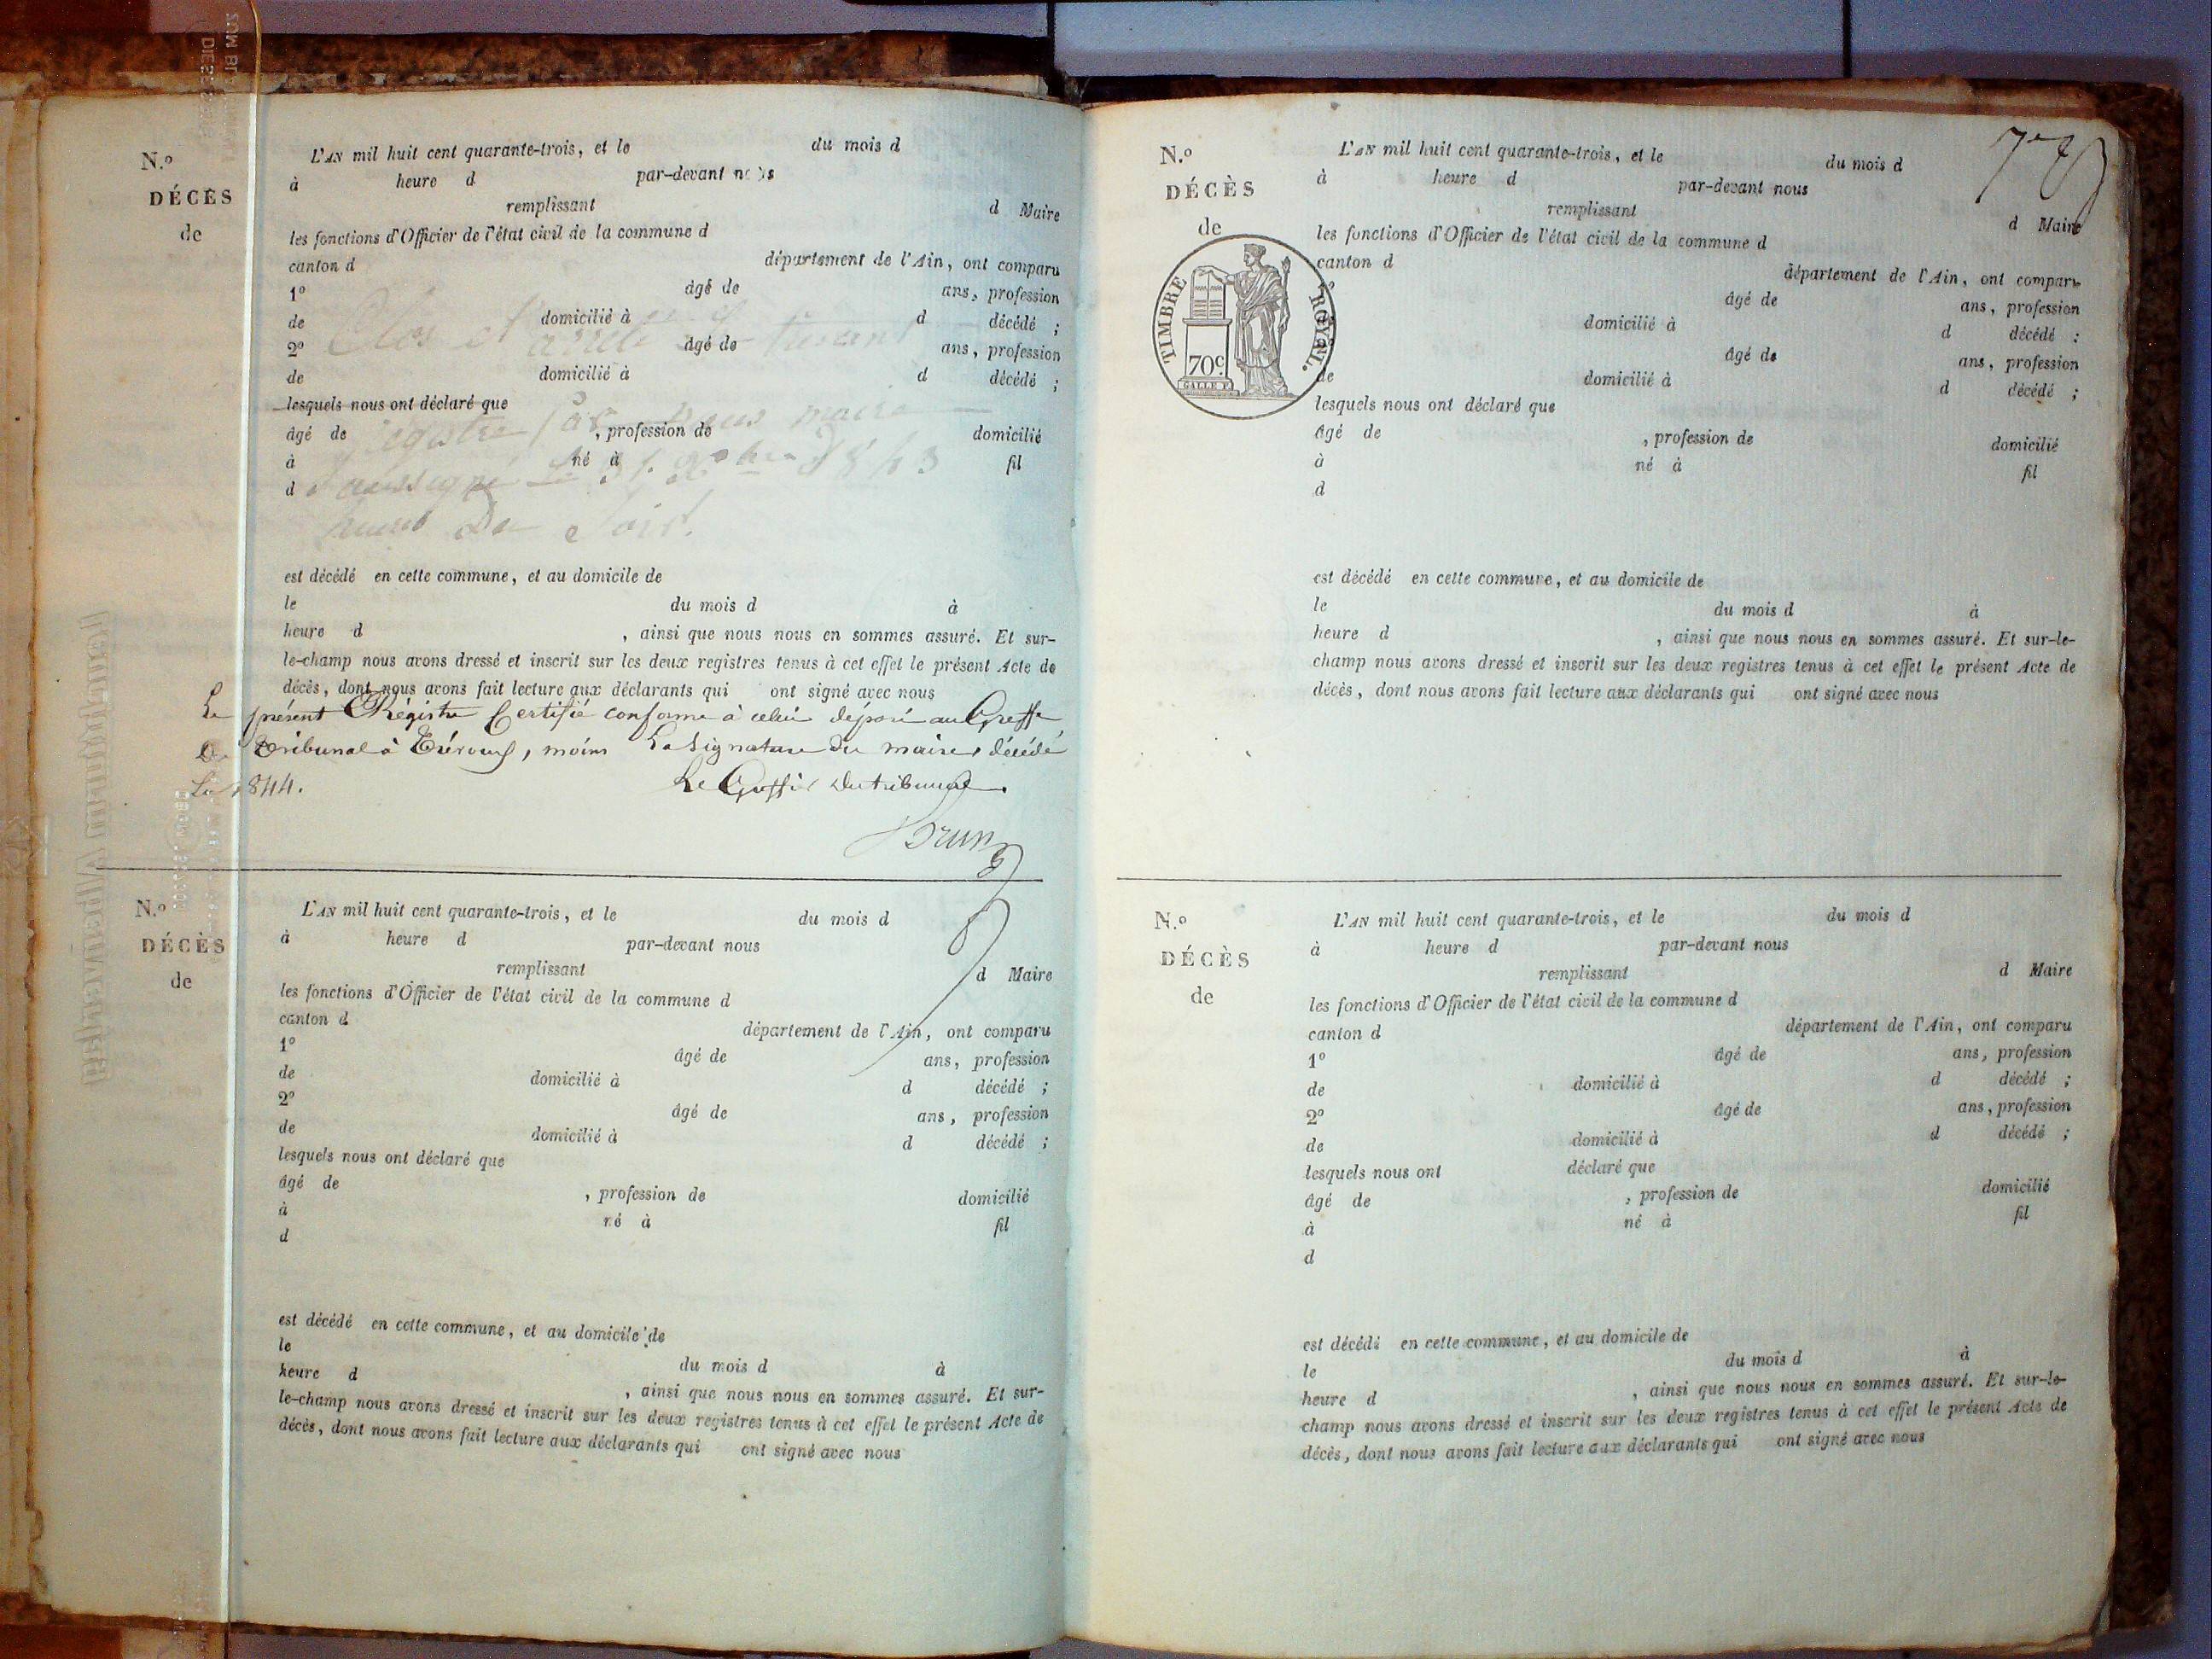 N.º
DÉCÈS
de
L'AN mil huit cent quarante-trois, et le du mois d
à heure d par-devant nous
remplissant d Maire
les fonctions d'Officier de l'état civil de la commune d
canton d département de l'Ain, ont comparu
1º âgé de ans, profession
de domicilié à d décédé ;
2º âgé de ans, profession
de domicilié à d décédé ;
lesquels nous ont déclaré que
âgé de , profession de domicilié
à né à fil
d
Clos et arrêté le présent
registre par nous maire
soussigné le 31 Xbre 1843
heures du soir.
est décédé en cette commune, et au domicile de
le du mois d à
heure d , ainsi que nous nous en sommes assuré. Et sur-
le-champ nous avons dressé et inscrit sur les deux registres tenus à cet effet le présent Acte de
décès, dont nous avons fait lecture aux déclarants qui ont signé avec nous
Le présent Régistre Certifié conforme à celui déposé au Greffe
Du Tribunal à Trévoux, moins La Signature du maire, décédé
En 1844. Le Greffier du tribunal
Brun
N.º
DÉCÈS
de
L'AN mil huit cent quarante-trois, et le du mois d
à heure d par-devant nous
remplissant d Maire
les fonctions d'Officier de l'état civil de la commune d
canton d département de l'Ain, ont comparu
1º âgé de ans, profession
de domicilié à d décédé ;
2º âgé de ans, profession
de domicilié à d décédé ;
lesquels nous ont déclaré que
âgé de , profession de domicilié
à né à fil
d
est décédé en cette commune, et au domicile de
le du mois d à
heure d , ainsi que nous nous en sommes assuré. Et sur-
le-champ nous avons dressé et inscrit sur les deux registres tenus à cet effet le présent Acte de
décès, dont nous avons fait lecture aux déclarants qui ont signé avec nous
N.º
DÉCÈS
de
TIMBRE ROYAL.
70c.
L'AN mil huit cent quarante-trois, et le du mois d
à heure d par-devant nous
remplissant d Maire
les fonctions d'Officier de l'état civil de la commune d
canton d département de l'Ain, ont comparu
âgé de ans, profession
domicilié à d décédé ;
âgé de ans, profession
de domicilié à d décédé ;
lesquels nous ont déclaré que
âgé de , profession de domicilié
à né à fil
d
est décédé en cette commune, et au domicile de
le du mois d à
heure d , ainsi que nous nous en sommes assuré. Et sur-le-
champ nous avons dressé et inscrit sur les deux registres tenus à cet effet le présent Acte de
décès, dont nous avons fait lecture aux déclarants qui ont signé avec nous
N.º
DÉCÈS
de
L'AN mil huit cent quarante-trois, et le du mois d
à heure d par-devant nous
remplissant d Maire
les fonctions d'Officier de l'état civil de la commune d
canton d département de l'Ain, ont comparu
1º âgé de ans, profession
de domicilié à d décédé ;
2º âgé de ans, profession
de domicilié à d décédé ;
lesquels nous ont déclaré que
âgé de , profession de domicilié
à né à fil
d
est décédé en cette commune, et au domicile de
le du mois d à
heure d , ainsi que nous nous en sommes assuré. Et sur-le-
champ nous avons dressé et inscrit sur les deux registres tenus à cet effet le présent Acte de
décès, dont nous avons fait lecture aux déclarants qui ont signé avec nous